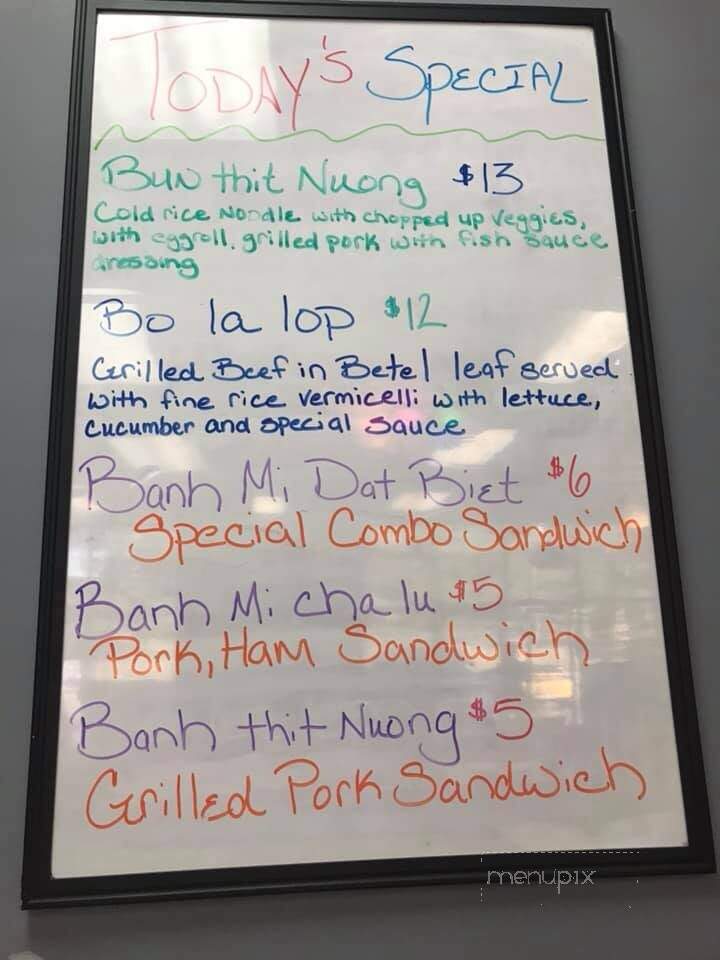 TODAY'S SPECIAL
Bun thit Nuong $13
Cold rice Noodle with chopped up veggies,
with eggroll, grilled pork with fish sauce
dressing
Bo la lop $12
Grilled Beef in Betel leaf served
with fine rice vermicelli with lettuce,
cucumber and special sauce
Banh Mi Dat Biet $6
Special Combo Sandwich
Banh Mi cha lu $5
Pork, Ham Sandwich
Banh thit Nuong $5
Grilled Pork Sandwich
menupix